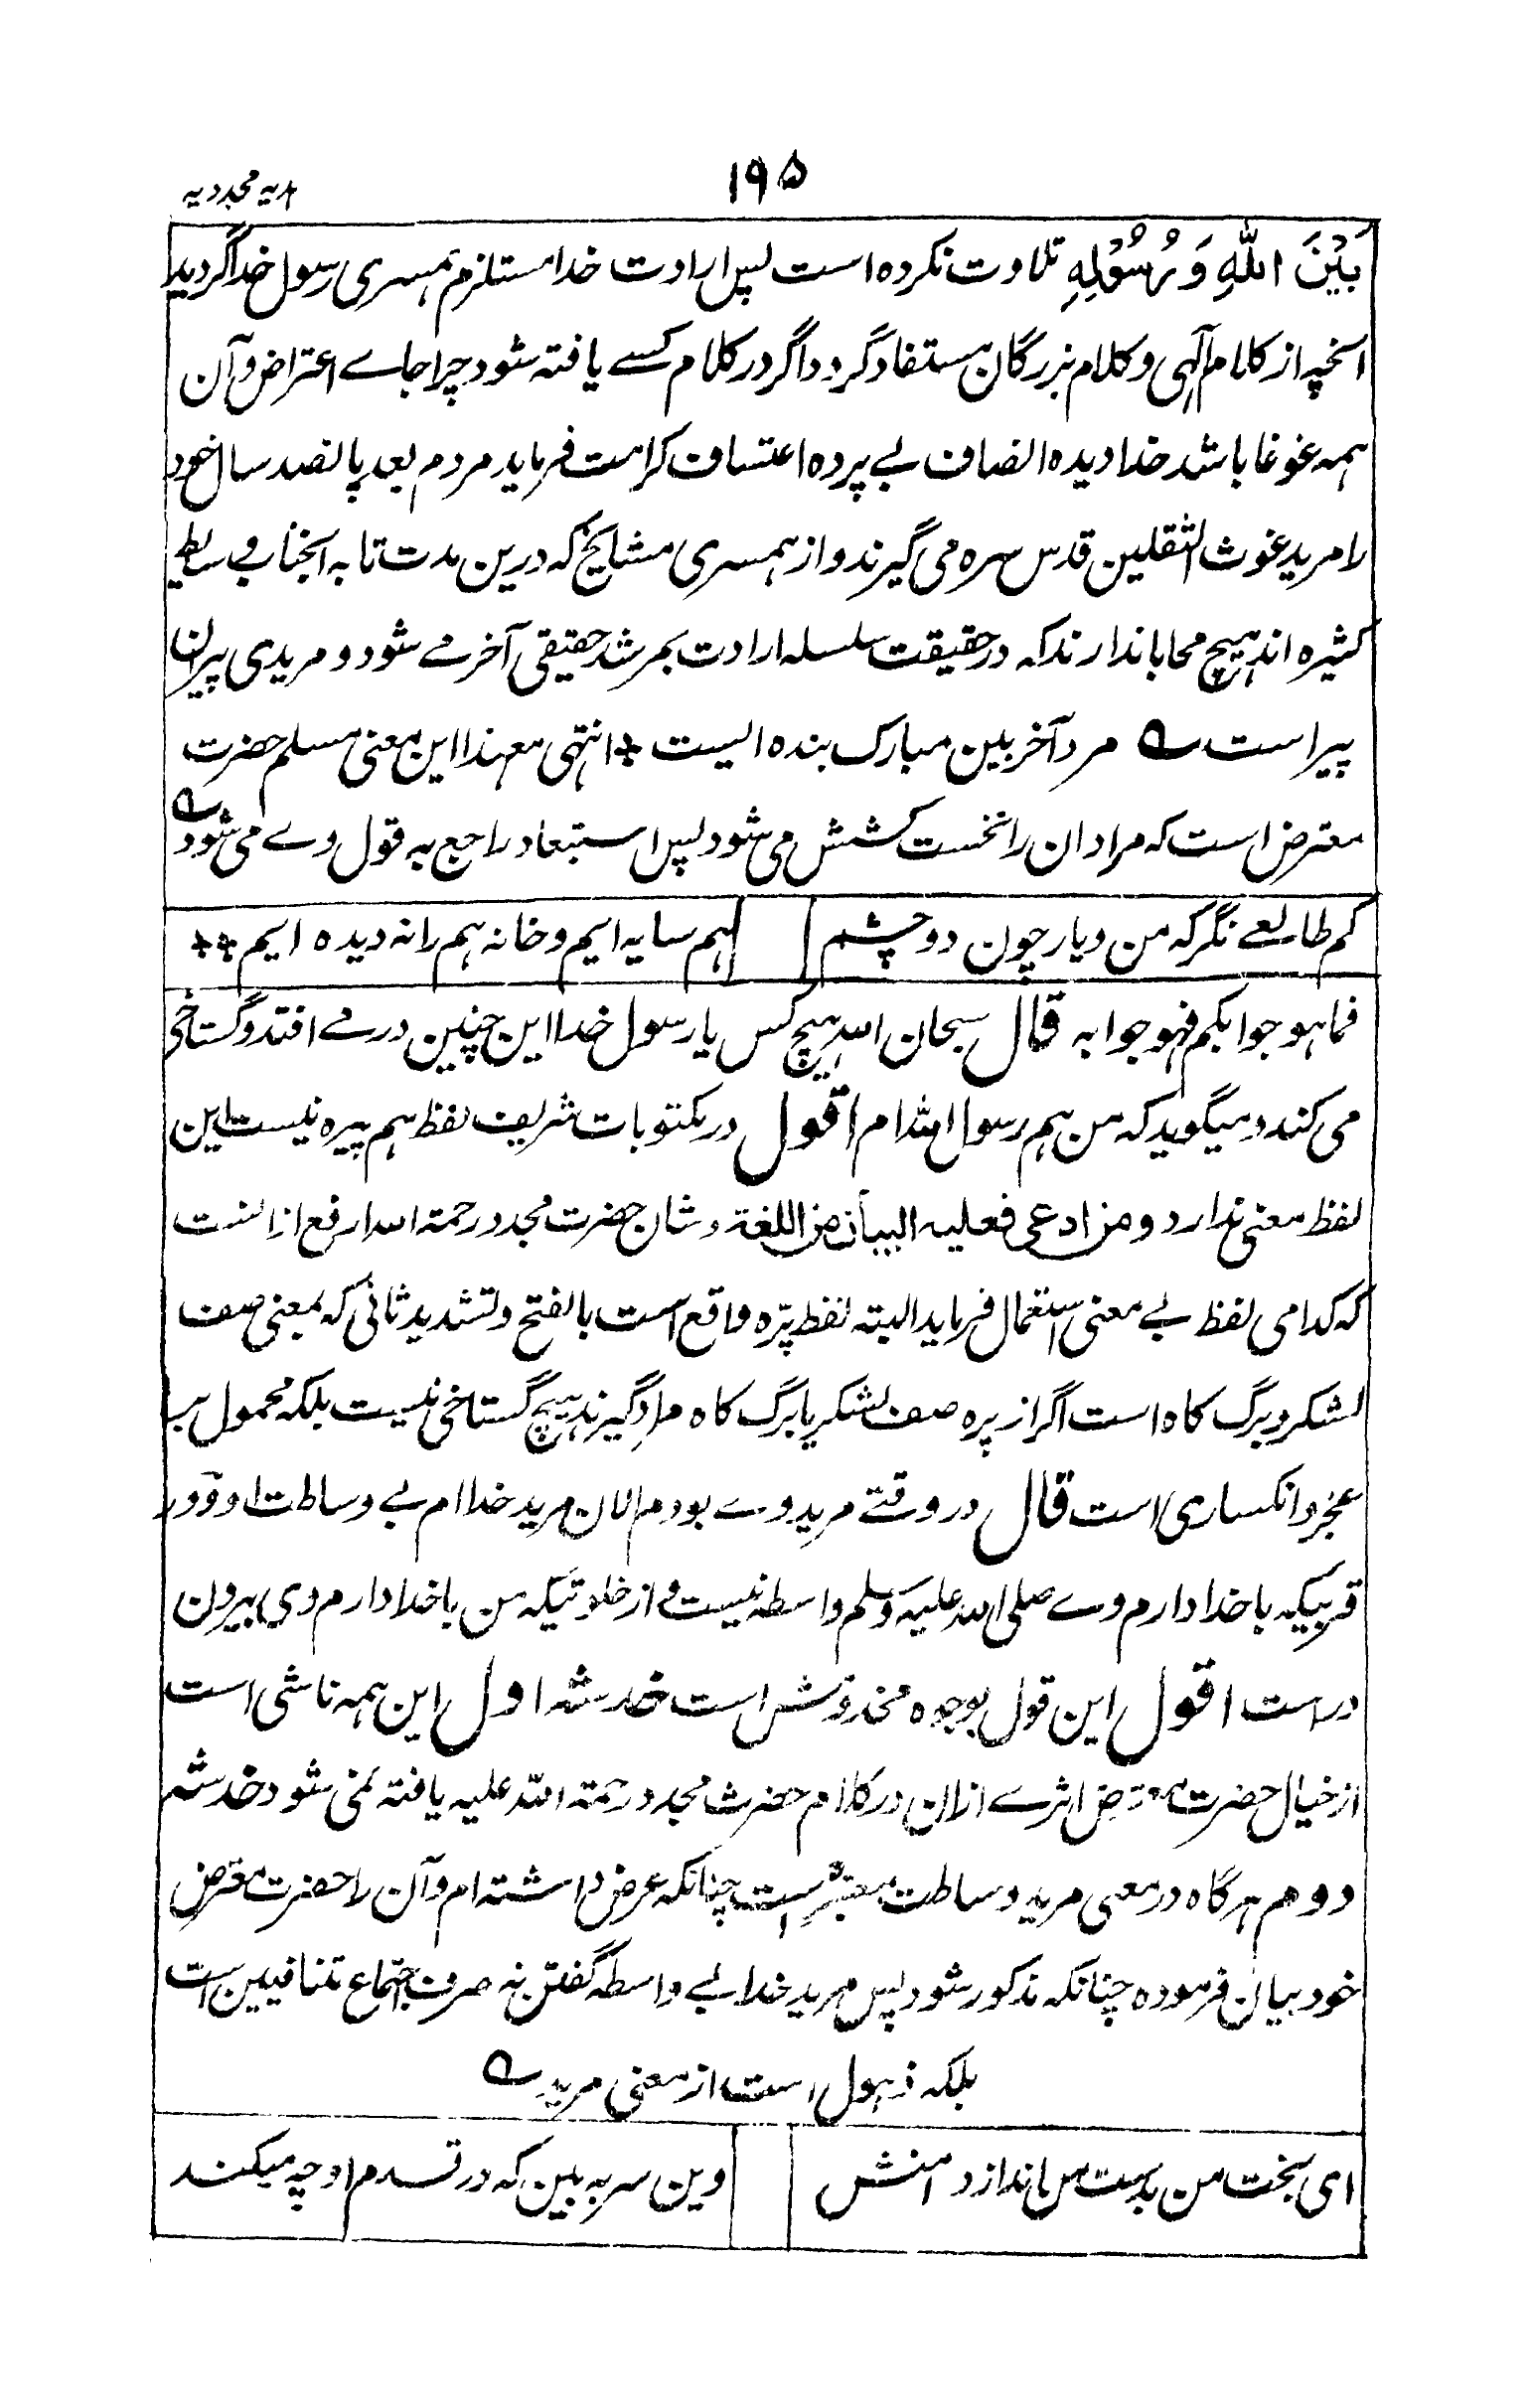 ۱۹۵
هدیه مجددیه
بَيْنَ اللهِ وَرُسُوْلِهِ تلاوت نکرده است پس ارادت خدا مستلزم همسری رسول خدا گردید
آنچه از کلام آلهی و کلام بزرگان مستفاد گردد اگر در کلام کسے یافته شود چرا جاے اعتراض و آن
همه غوغا باشد خدا دیده انصاف بے پرده اعتساف کرامت فرماید مردم بعد پانصد سال خود
را مرید غوث الثقلین قدس سره می گیرند و از همسری مشایخ که درین مدت تا به آنجناب وسایط
کثیره اند هیچ محابا ندارند که در حقیقت سلسله ارادت بمرشد حقیقی آخر مے شود و مریدی پیران
پیر است ے مرد آخر بین مبارک بنده ایست ٭ انتهی معهذا این معنی مسلم حضرت
معترض است که مرادان را نخست کشش می شود پس استبعاد راجع به قول وے می شود ے
کم طالعے نگر که من و یار چون دو چشم
هم سایه ایم و خانه هم را نه دیده ایم ٭٭
فما هو جوابکم فهو جوابه قال سبحان الله هیچ کس یا رسول خدا این چنین در مے افتد و گستاخی
می کند و میگوید که من هم رسول الله ام اقول در مکتوبات شریف لفظ هم پیره نیست این
لفظ معنی ندارد و من ادعی فعلیه البیان من اللغة و شان حضرت مجدد رحمة الله ارفع از انست
که کدامی لفظ بے معنی استعمال فرماید البته لفظ پرّه واقع است بالفتح و تشدید ثانی که بمعنی صف
لشکر و برگ کاه است اگر از پره صف لشکر یا برگ کاه مراد گیرند هیچ گستاخی نیست بلکه محمول بر
عجز و انکساری است قال در وقتے مرید وے بودم الان مرید خدا ام بے وساطت او و در
قربیکه با خدا دارم وے صلی الله علیه وسلم واسطه نیست و از خلوتیکه من با خدا دارم وی بیرون
در است اقول این قول بوجوه مخدوش است خدشه اول این همه ناشی است
از خیال حضرت معترض اثرے ازان در کلام حضرت مجدد رحمة الله علیه یافته نمی شود خدشه
دوم هرگاه در معنی مرید وساطت معتبر است چنانکه عرض داشته ام و آن را حضرت معترض
خود بیان فرموده چنانکه مذکور شود پس مرید خدا بے واسطه گفتن نه صرف اجتماع متنافیین است
بلکه ذهول است از معنی مرید ے
ای بخت من بدست من انداز دامنش
وین سر به بین که در قدم او چه میکند